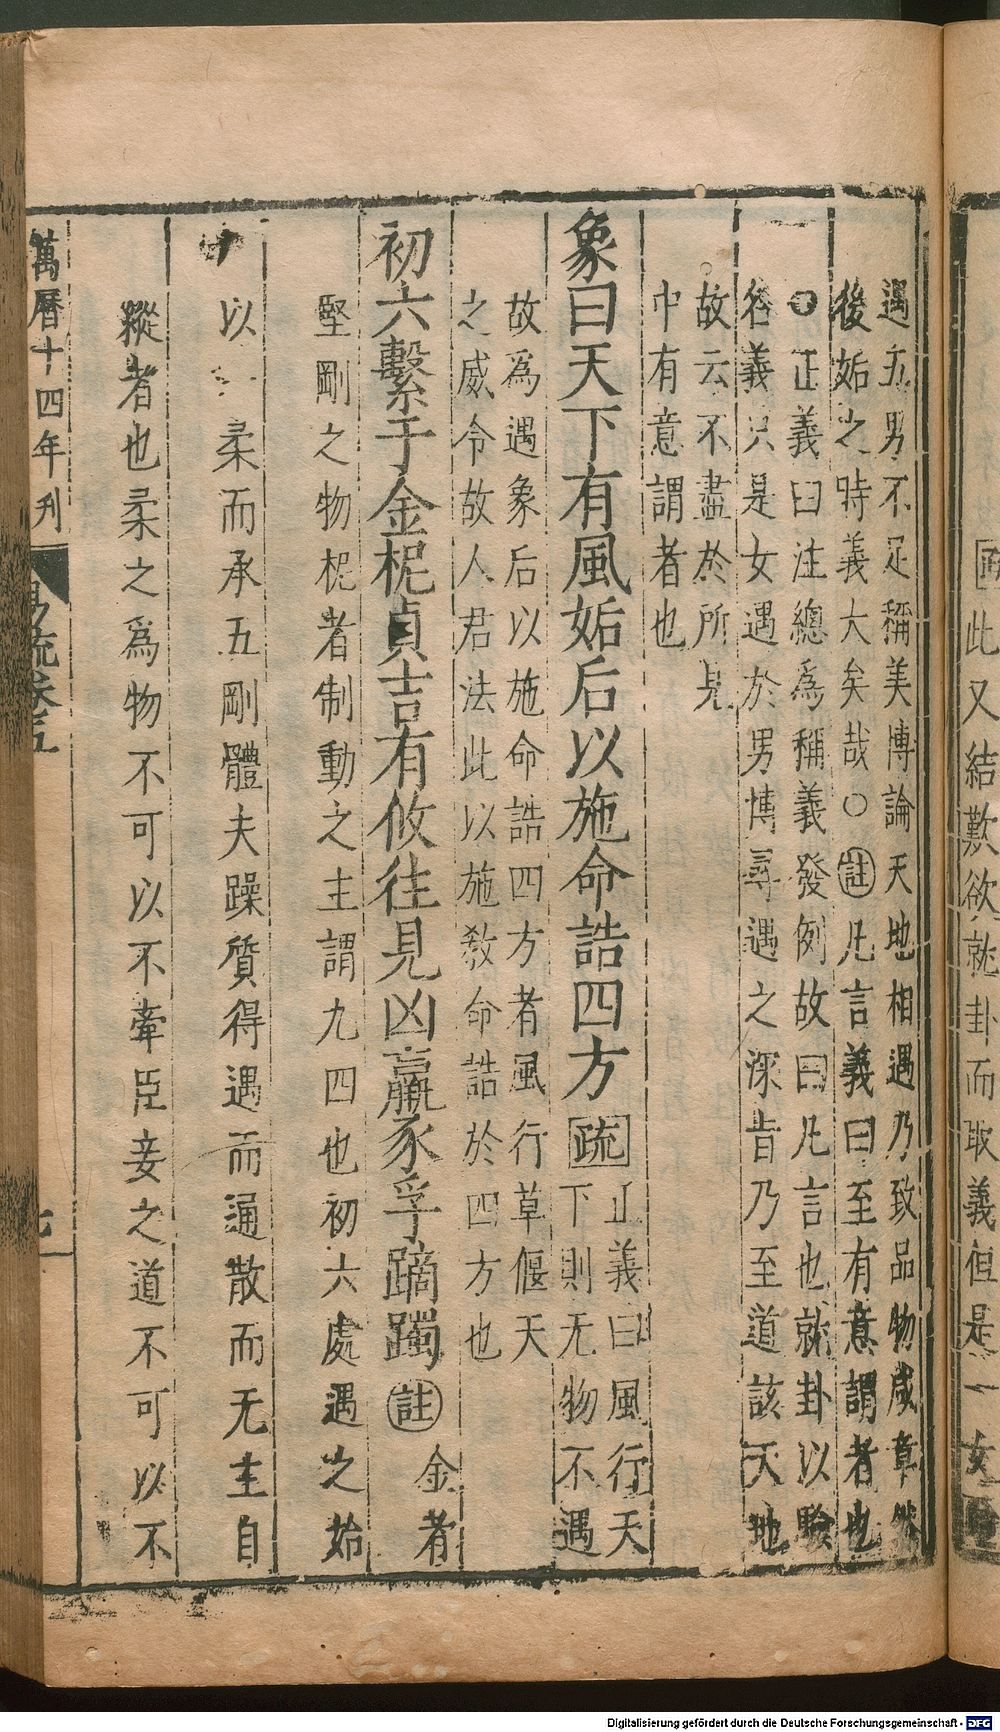 遇五男不足稱美博論天地相遇乃致品物咸章然
後姤之時義大矣哉○註凡言義曰至有意謂者也
○正義曰注總爲稱義發例故曰凡言也就卦以驗
名義只是女遇於男博尋遇之深旨乃至道該天地
故云不盡於所見
中有意謂者也
象曰天下有風姤后以施命誥四方疏
正義曰風行天
下則无物不遇
故爲遇象后以施命誥四方者風行草偃天
之威令故人君法此以施教命誥於四方也
初六繫于金柅貞吉有攸往見凶羸豕孚蹢躅註金者
堅剛之物柅者制動之主謂九四也初六處遇之始
以柔而承五剛體夫躁質得遇而通散而无主自
縱者也柔之爲物不可以不牽臣妾之道不可以不
萬曆十四年刋
易疏卷五
七
疏此又結歎欲就卦而取義但是一女
Digitalisierung gefördert durch die Deutsche Forschungsgemeinschaft - DFG